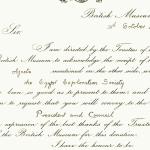 British Museum
October
Sir
I am directed by the Trustees of
British Museum to acknowledge the receipt of
Objects
mentioned in the other side,
the Egypt Exploration Society
been so good as to present to them; and
to request that you will convey to the
President and Council
expression of the best thanks of the Trustees
the British Museum for this donation.
I have the honour to be